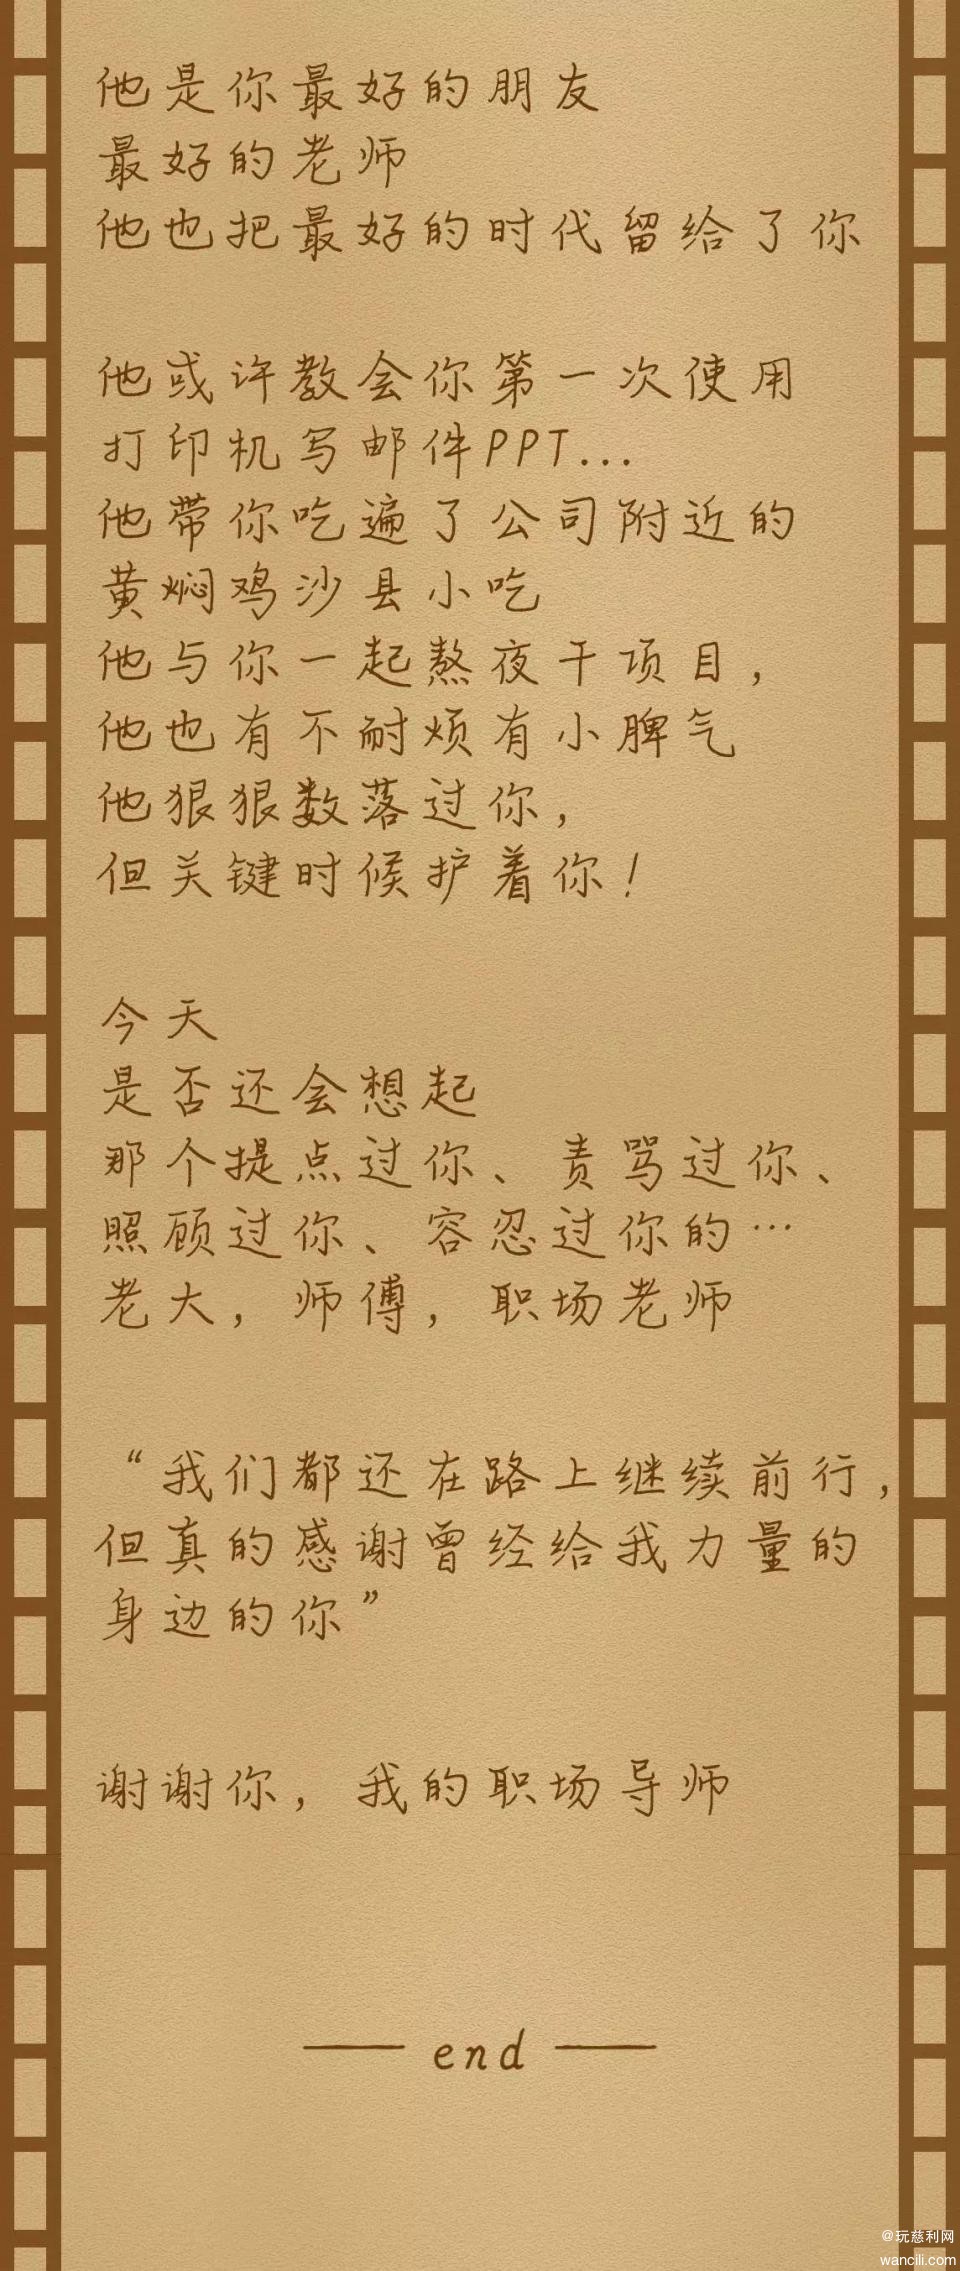 他是你最好的朋友
最好的老师
他也把最好的时代留给了你
他或许教会你第一次使用
打印机写邮件PPT...
他带你吃遍了公司附近的
黄焖鸡沙县小吃
他与你一起熬夜干项目，
他也有不耐烦有小脾气
他狠狠数落过你，
但关键时候护着你！
今天
是否还会想起
那个提点过你、责骂过你、
照顾过你、容忍过你的…
老大，师傅，职场老师
“我们都还在路上继续前行，
但真的感谢曾经给我力量的
身边的你”
谢谢你，我的职场导师
— end —
@玩慈利网
wancili.com